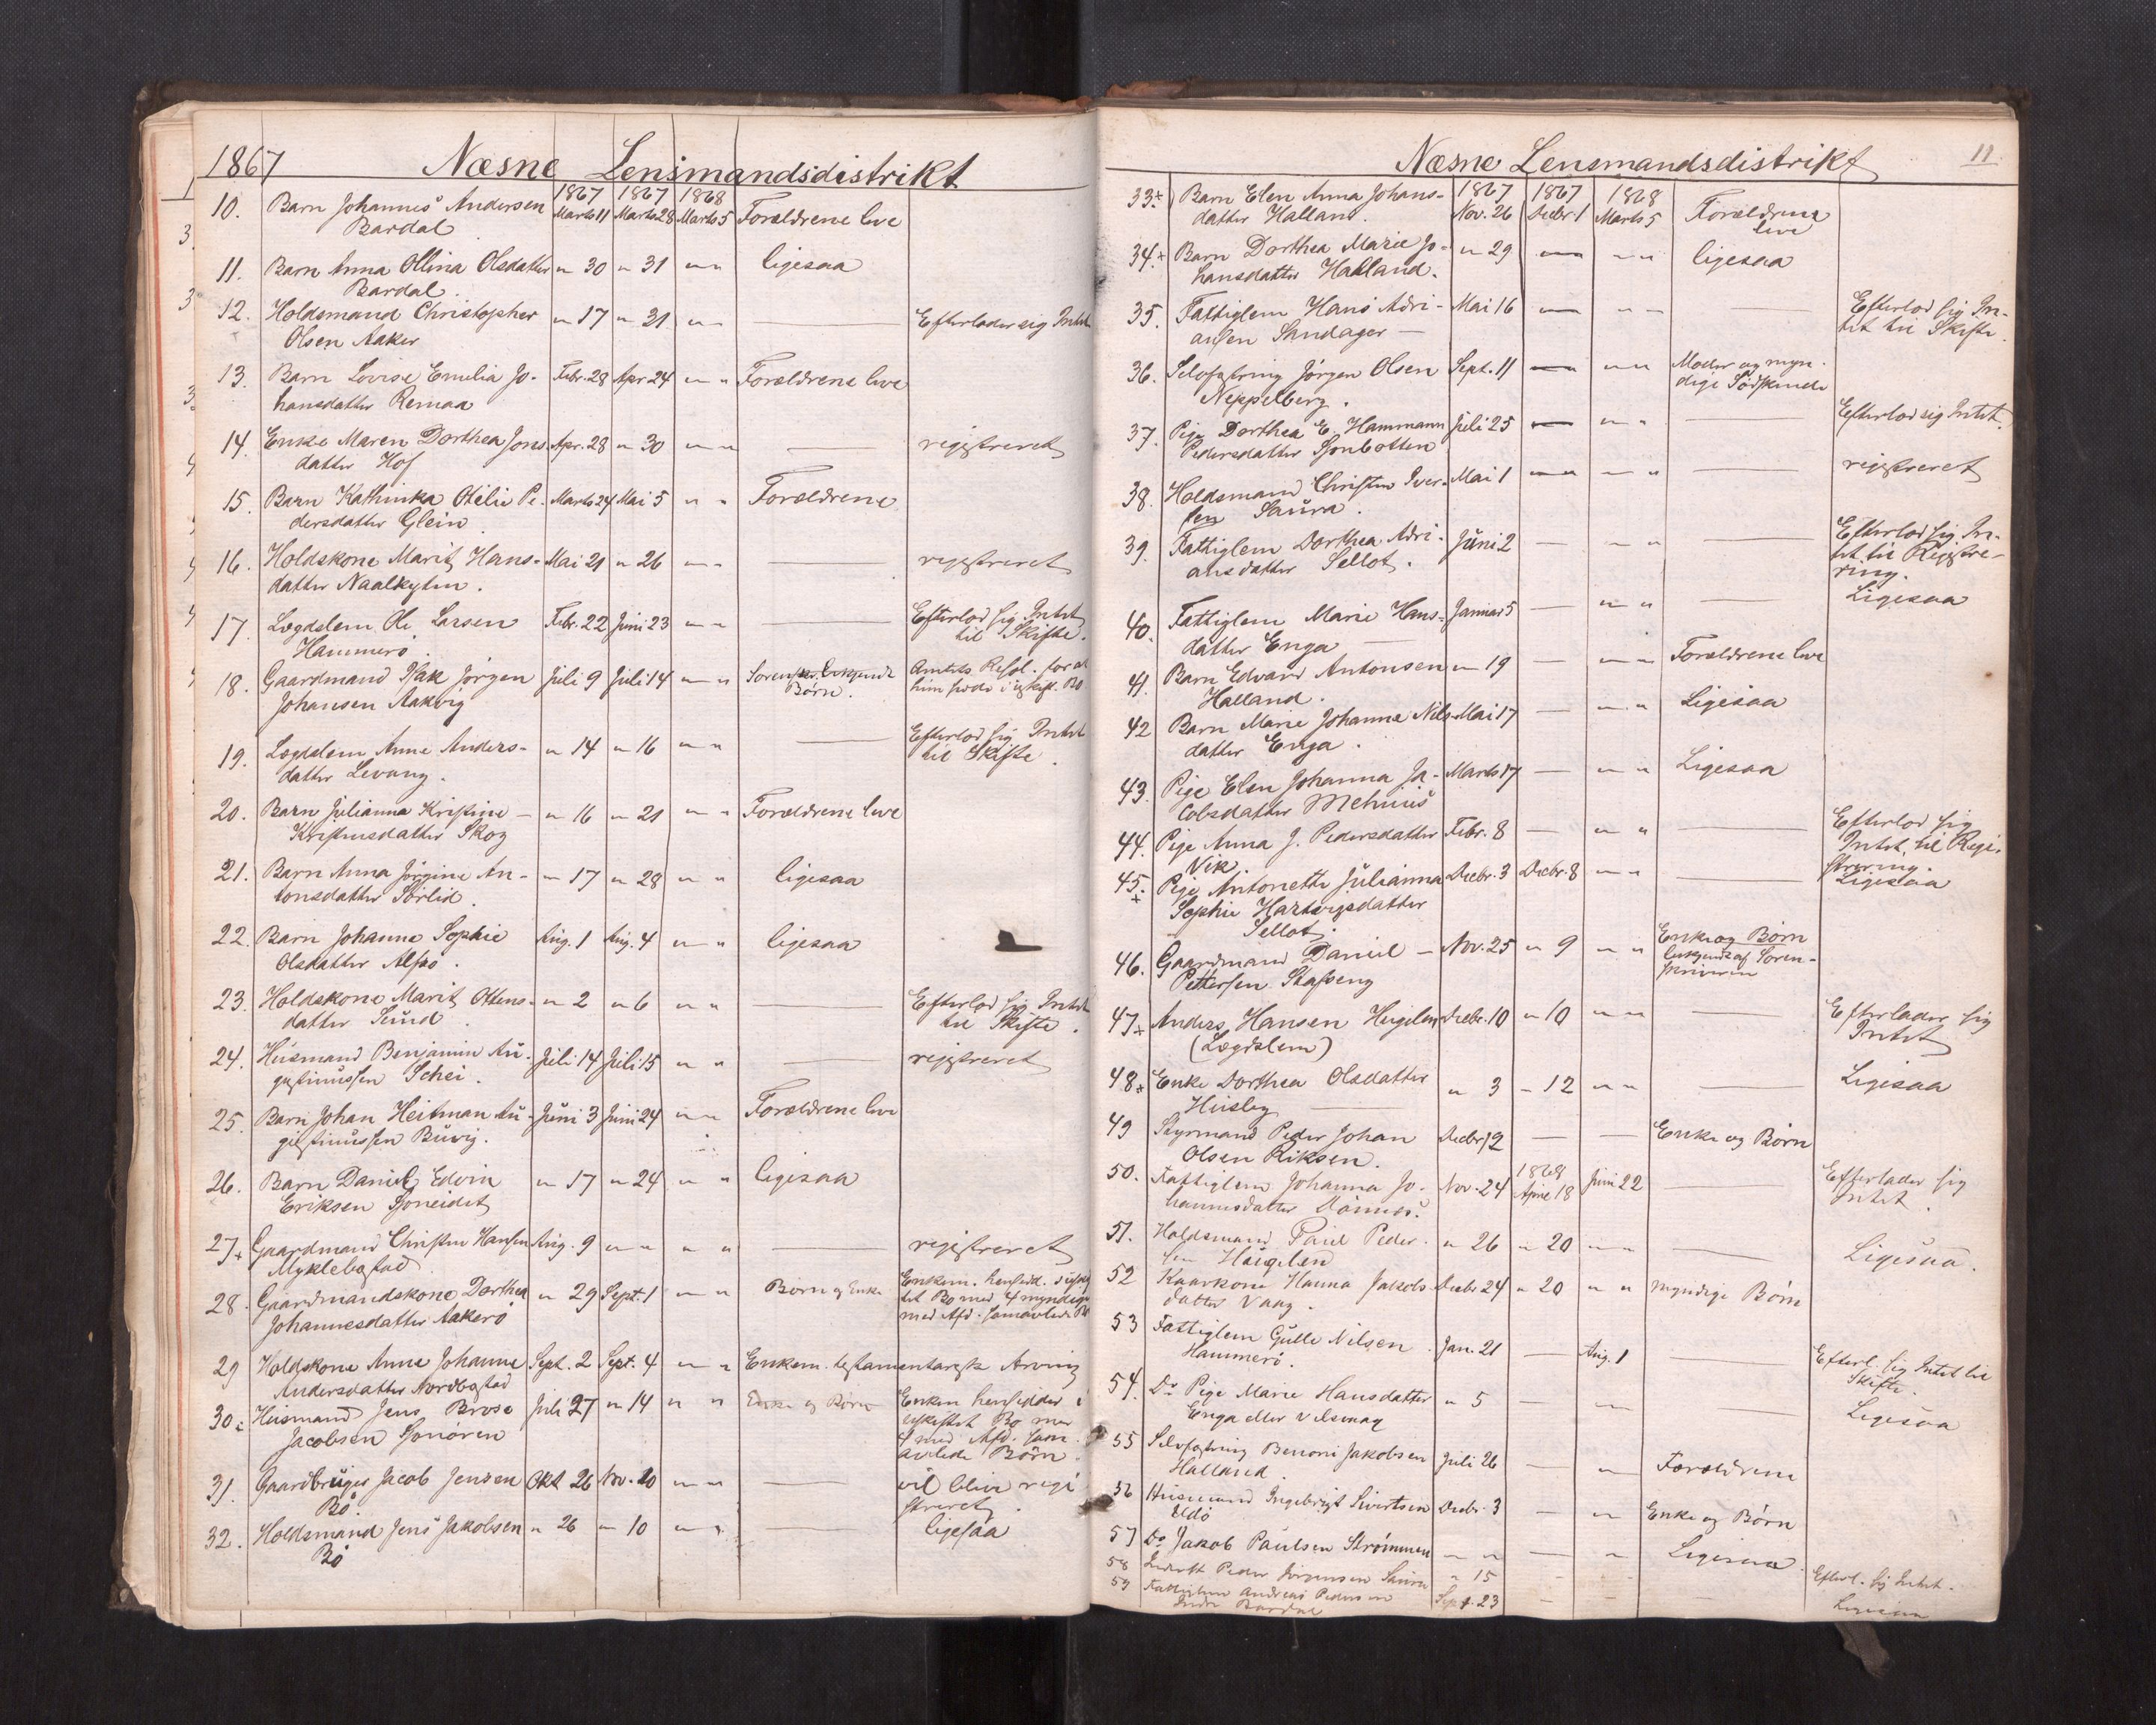 1867 Næsne Lensmandsdistrikt
1867 1867 1868
10. Barn Johannes Andersen Marts 11 Marts 28 Marts 5 Forældrene leve
Bardal
11. Barn Anna Ollina Olsdatter " 30 " 31 " " ligesaa
Bardal.
12. Holdsmand Christopher " 17 " 31 " " — Efterlader sig Intet
Olsen Aaker
13. Barn Lovise Emilia Jo- Febr. 28 Apr 24 " " Forældrene leve
hansdatter Remaa
14. Enke Maren Dorthea Jons- Apr. 28 " 30 " " — registreret
datter Hof
15. Barn Kathinka Otilie Pe- Marts 24 Mai 5 " " Forældrene
dersdatter Glein
16. Holdskone Marit Hans- Mai 21 " 26 " " — registreret
datter Naalkyten.
17. Lægdslem Ole Larsen Febr. 22 Juni 23 " " — Efterlod sig Intet
Hammerø. til Skifte.
18. Gaardmand Isak Jørgen Juli 9 Juli 14 " " Børn. Amts Resol. for at
Johansen Aakvig
19. Lægdslem Anne Anders- " 14 " 16 " " — Efterlod sig Intet
datter Levang. til Skifte.
20. Barn Julianna Kristine — " 16 " 21 " " Forældrene leve
Kristensdatter Skog
21. Barn Anna Jørgine An- " 17 " 28 " " ligesaa
tonsdatter Sørlid.
22. Barn Johanna Sophie Aug. 1 Aug. 4 " " ligesaa
Olsdatter Alsø.
23. Holdskone Marit Ottens- " 2 " 6 " " — Efterlod sig Intet
datter Sund. til Skifte.
24. Husmand Benjamin Au- Juli 14 Juli 15 " " — registreret
gustinussen Schei.
25. Barn Johan Heitman Au- Juni 3 Juni 24 " " Forældrene leve
gustinussen Buvig.
26. Barn Daniel Edvin " 17 " 24 " " ligesaa
Eriksen Sjoneidet
27+ Gaardmand Christen Hansen Aug. 9 " " " " — registreret
Myklebostad
28. Gaardmandskone Dorthea " 29 Sept. 1 " " Børn og Enke
Johannesdatter Aakerø
29 Holdskone Anne Johanne Sept. 2 Sept. 4 " " Enkem. testamentariske Arving
Andersdatter Nordbostad
30. Husmand Jens Brose Juli 27 " 14 " " Enke og Børn Enken hensidder i
Jacobsen Sjonøren uskiftet Bo med
4 med Afd. sam-
avlede Børn.
31. Gaardbruger Jacob Jensen Okt 26 Nov. 10 " " — vil blive regi-
Bø. streret.
32. Holdsmand Jens Jakobsen " 26 " 10 " " ligesaa
Bø
Næsne Lensmandsdistrikt 11
1867 1867 1868
33+ Barn Elen Anna Johans- Nov. 26 Decbr 1 Marts 5 Forældrene
datter Halland. leve
34+ Barn Dorthea Marie Jo- " 29 — " " ligesaa
hansdatter Halland.
35. Fattiglem Hans Adri- Mai 16 — " " — Efterlod sig In-
ansen Sandager — tet til Skifte.
36. Selvforsørg Jørgen Olsen Sept. 11 — " " Moder og myn-
Neppelberg. dige Sødskende
37. Pige Dorthea E. Hammann Juli 25 — " " — Efterlod sig Intet.
Pedersdatter Sjonbotten
38. Holdsmand Christen Iver- Mai 1 — " " — registreret
sen Saura.
39. Fattiglem Dorthea Adri- Juni 2 — " " — Efterlod sig In-
ansdatter Sellot. tet til Registre-
ring.
40. Fattiglem Marie Hans- Januar 5 — " " — Ligesaa
datter Enga —
41. Barn Edvard Antonsen " 19 — " " Forældrene leve
Halland.
42 Barn Marie Johanna Nils- Mai 17 — " " Ligesaa
datter Enga.
43. Pige Elen Johanna Ja- Marts 17 — " " Ligesaa
cobsdatter Mehuus
44. Pige Anna J. Pedersdatter Febr. 8 — " " — Efterlod sig
Vik. Intet til Regi-
strering.
45+ Pige Antonette Julianna Decbr. 3 Decbr. 8 " " — Ligesaa
Sophie Hartvigsdatter
Sellot.
46. Gaardmand Daniel — Nov. 25 " 9 " " Enke og Børn
Pettersen Stafseng af Soren-
skriveren
47+ Anders Hansen Heigelem Decbr. 10 " 10 " " — Efterlader sig
(Lægdslem) Intet
48+ Enke Dorthea Olsdatter " 3 " 12 " " — Ligesaa
Husby —
49 Styrmand Peder Johan Decbr 12 — — Enke og Børn
Olsen Riksen.
50. Fattiglem Johanna Jo- Nov. 24 1868 April 18 Juni 22 — Efterlader sig
hannesdatter Dønnes. Intet.
51. Holdsmand Paul Peder- " 26 " 20 " " — Ligesaa.
sen
52 Kaarkone Hanna Jakobs- Decbr 24 " 20 " " myndige Børn
datter Vaag.
53 Fattiglem Gulle Nilsen Jan. 21 — Aug. 1 — Efterl. sig Intet til
Hammerø. Skifte.
54. Do Pige Marie Hansdatter " 5 — " — Ligesaa
Enga eller
55 Selvforsørg Benoni Jakobsen Juli 26 — " Forældrene
Halland.
56 Husmand Ingebrigt Sivertsen Decbr. 3 — " Enke og Børn
57 Do Jakob Paulsen Strømmen " " — " Ligesaa
58 Peder Jørgensen Saura " 15 — — Efterl. sig Intet.
59 Fattiglem Andreas Pedersen Sept. 23 — — — Ligesaa
Bardal